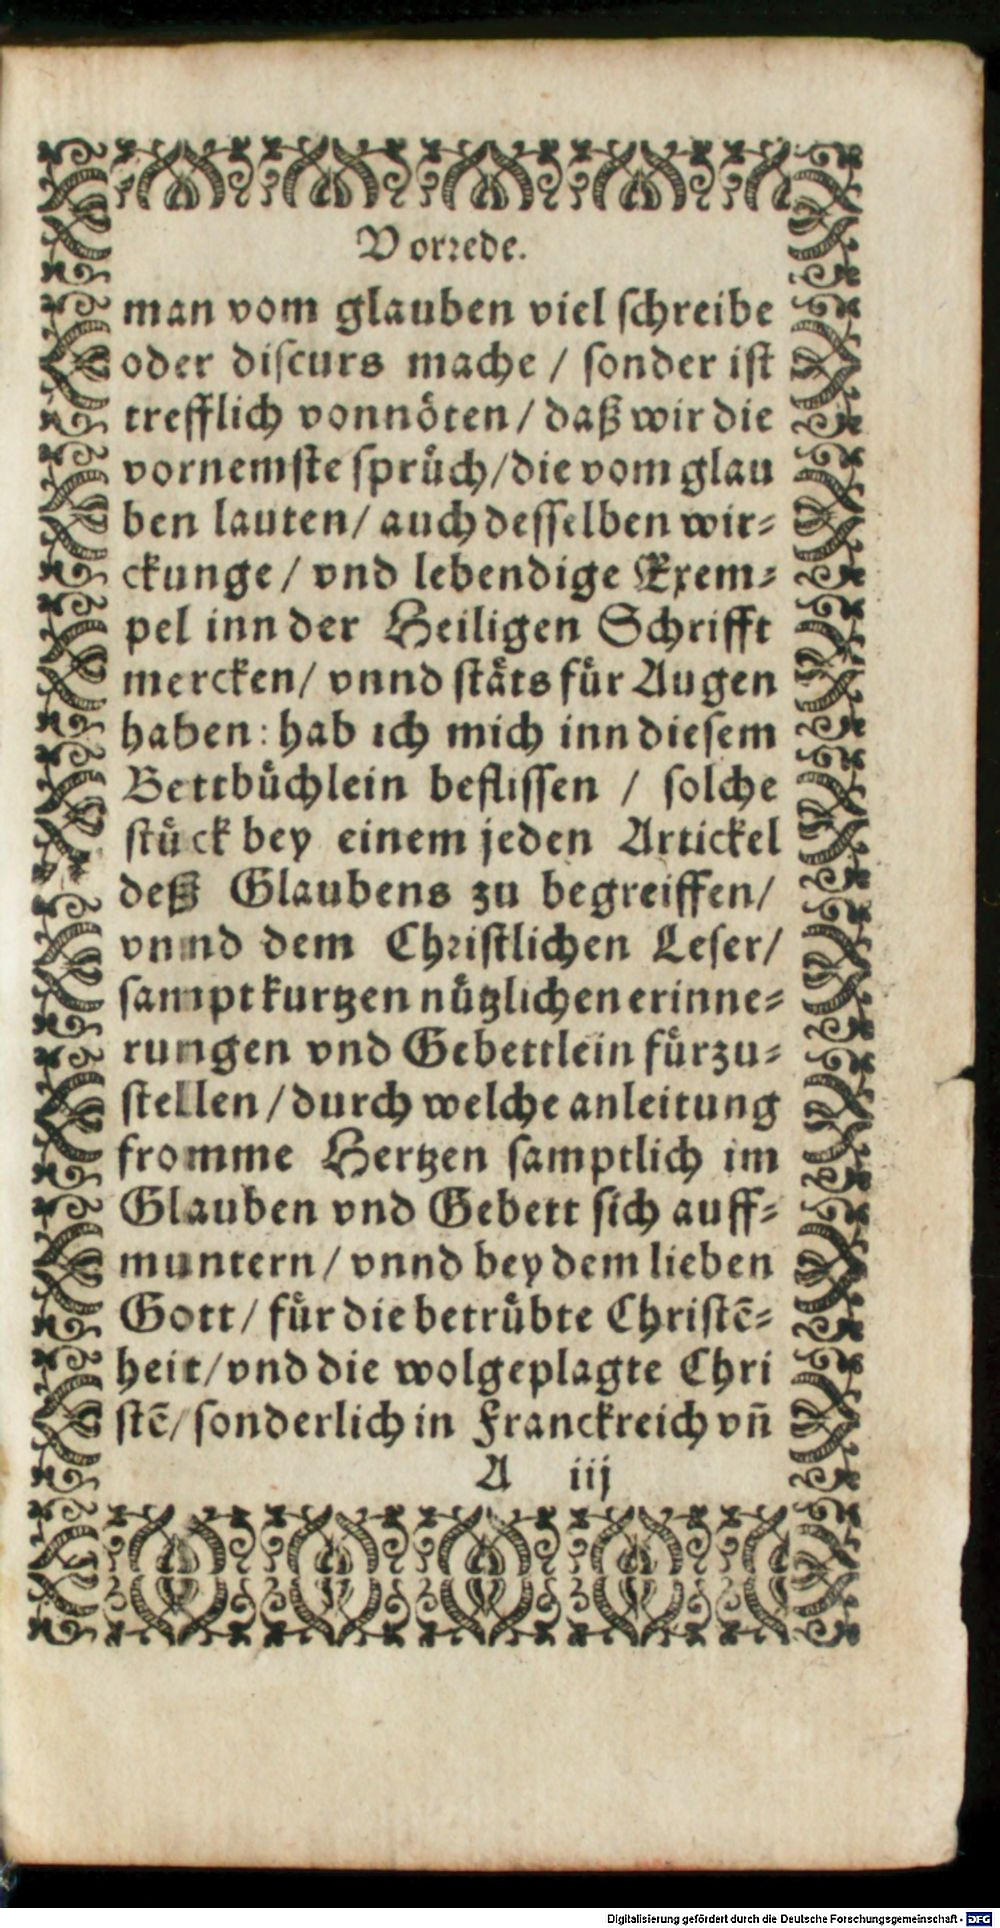 Vorꝛede.
man vom glauben viel ſchreibe
oder diſcurs mache / ſonder iſt
trefflich vonnoͤten / daß wir die
vornemſte ſpruͤch / die vom glau
ben lauten / auch deſſelben wir⸗
ckunge / vnd lebendige Exem⸗
pel inn der Heiligen Schrifft
mercken / vnnd ſtaͤts fuͤr Augen
haben: hab ich mich inn dieſem
Bettbuͤchlein befliſſen / ſolche
ſtuͤck bey einem jeden Artickel
deß Glaubens zu begreiffen /
vnnd dem Chꝛiſtlichen Leſer /
ſampt kurtzen nuͤtzlichen erinne⸗
rungen vnd Gebettlein fuͤrzu⸗
ſtellen / durch welche anleitung
fromme Hertzen ſamptlich im
Glauben vnd Gebett ſich auff⸗
muntern / vnnd bey dem lieben
Gott / fuͤr die betruͤbte Chriſtē⸗
heit / vnd die wolgeplagte Chri
ſtē / ſonderlich in Franckreich vn̄
A iij
Digitalisierung gefördert durch die Deutsche Forschungsgemeinschaft - DFG